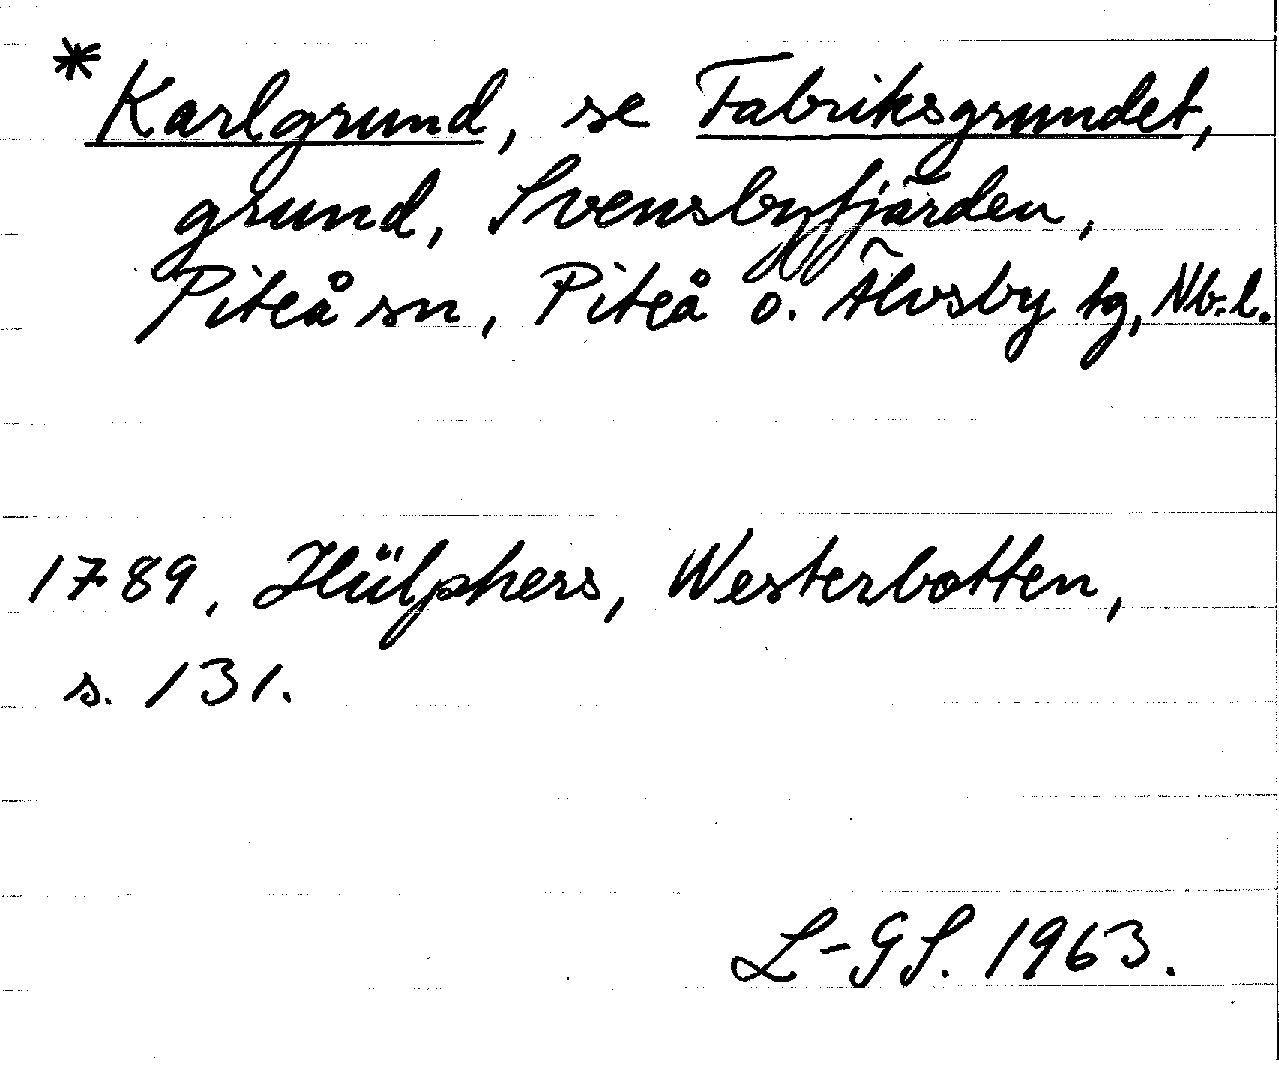 * Karlgrund, se Fabriksgrundet,
grund, Svensbyfjärden,
Piteå sn, Piteå o. Älvsby tg, Nb. l.
1789, Hülphers, Westerbotten,
s. 131.
L-GS. 1963.